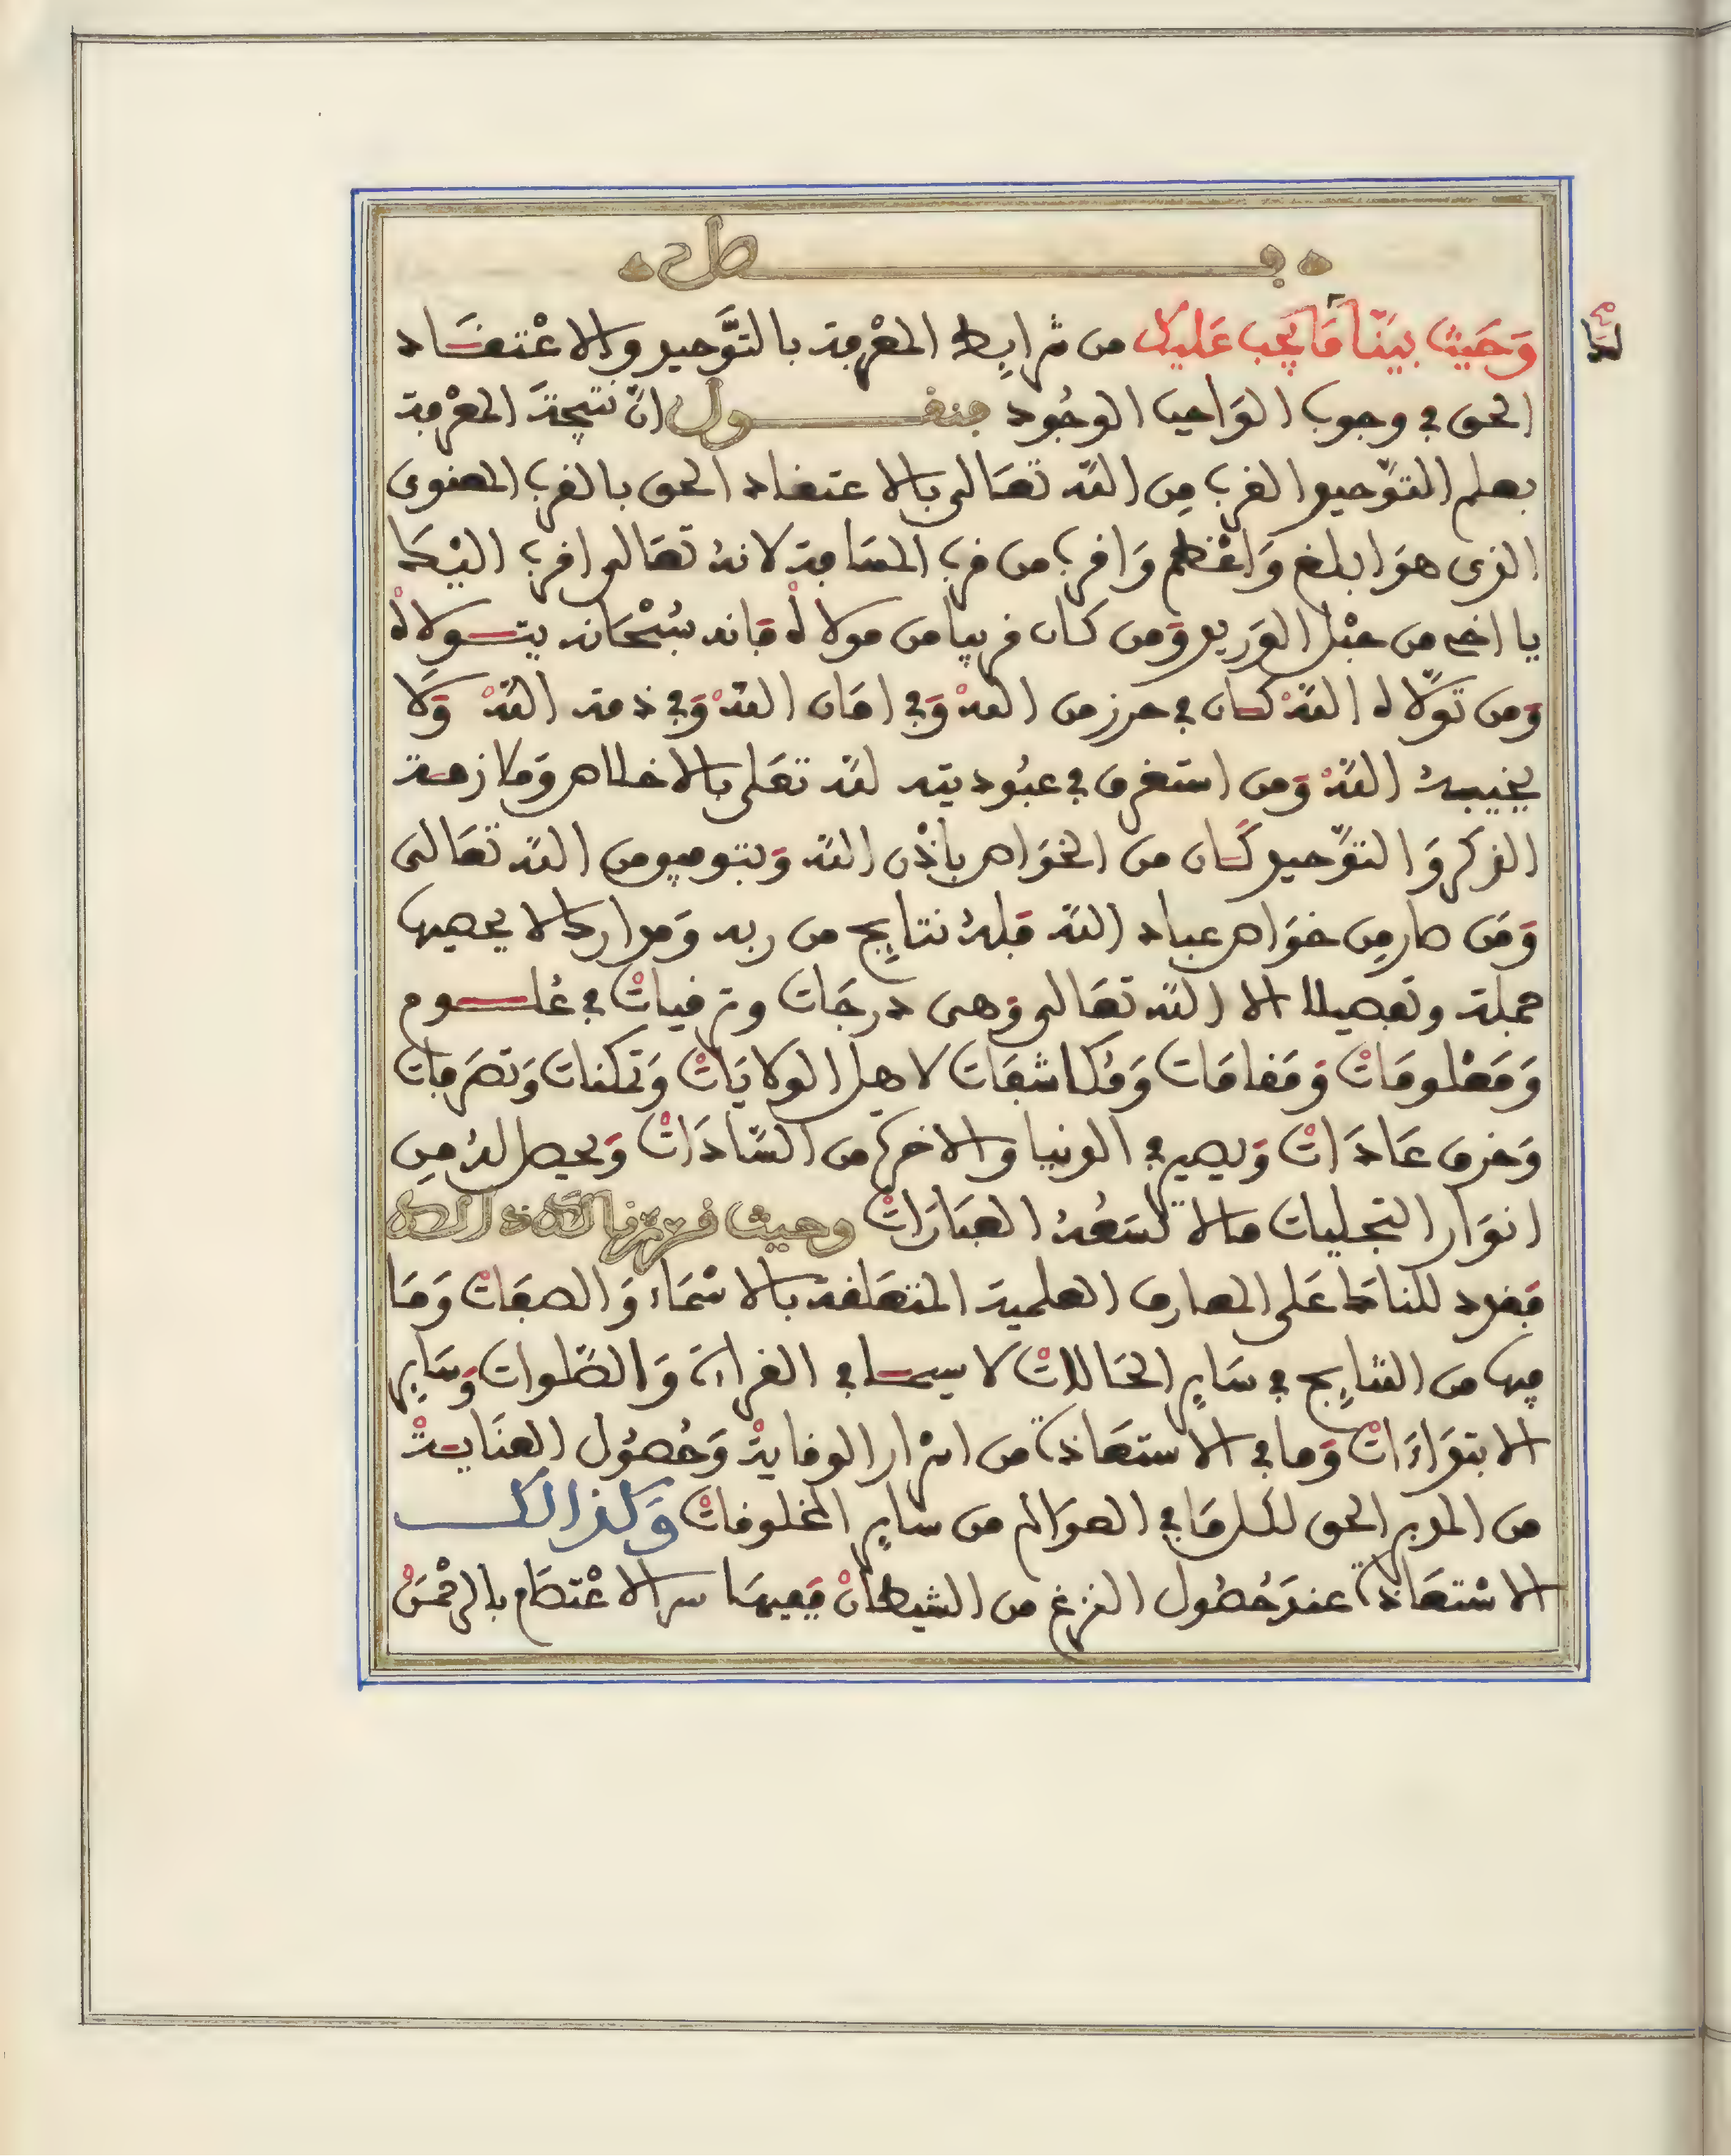 فصل
وَحَيْثُ بيَنّا لَكَ مَا يَجب عَليك من شرايط المعْرفة بالتَّوحيد والاعْتقَاد
الحق في وجوب الوَاجب الوجُود فنقول انّ نتيجَة المعْرفة
بعلم التوّحيد القرب مِن اللّه تعَالى بالاعتقاد الحق بالقرب المعنوى
الذى هوَ ابلغ وَاعْظم وَاقرب من قرب المسَافة لانهُ تعَالى اقرب اليْكَ
يا اخى من حبْل الوَريد وَمن كان قريبا من مولاه فَانه سُبْحَانه يتولاه
وَمن توَلّاه اللّهْ كان في حرز من اللهْ وَفي امَان اللّهْ وَفي ذمة اللّهْ وَلَا
يخيبهُ اللّهْ وَمن استغرق في عبُوديته للّه تعَلى بالاخلاص وَملازمة
الذكر وَالتوّحيد كَان من الخوَاص باذْن اللّه وَبتوفيق من اللّه تعَالى
وَمَن صار مِن خوَاص عباد اللّه فَلهُ نتايج من ربه وَموارد لا يحصيها
جملة وتفصيلا الا اللّه تعَالى وَهى درجَات وترقيات في عُلوم
وَمَعْلومَاتْ وَمَقامَات وَمُكاشفَات لاهل الولايَاتْ وَتمكنات وَتصَرفات
وَخرق عَادَاتْ وَيصير في الدنيا والاخرة من السَّادَاتْ وَيحصل لهُ مِن
انوَار التجليات ما لا تسَعُهُ العبَارَاتْ وحيث قررنا لك ذالك
فنعود للكلام عَلى المعارف العلمية المتعَلقة بالاسْمَاء وَالصفَاتْ وَمَا
فيها من النتايج في سَاير الحَالاتْ لا سيما في القراءة وَالصّلوات وَسَاير
الابتدَاءَاتْ وَما في الاستعَاذة من اسْرار الوقايةْ وَحُصُول العنَايةْ
من المدبر الحق لكل مَا في العوَالم من ساير المخلوقاتْ وَكذالك
الاسْتعَاذة عندَ حُصُول النزغ من الشيطَانْ فَفيهَا سر الاعْتصَام بالرحْمَنْ